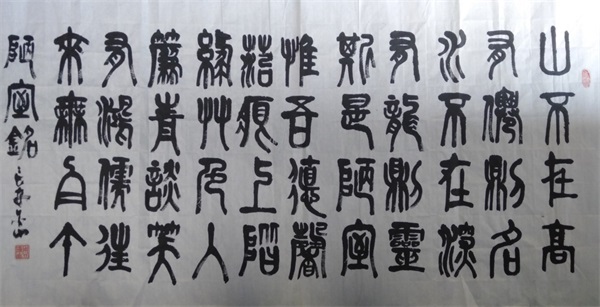 山不在高
有僊則名
水不在深
有龍則靈
斯是陋室
惟吾德馨
苔痕上階
綠艸色入
簾青談笑
有鴻儒往
來無白丁
陋室銘